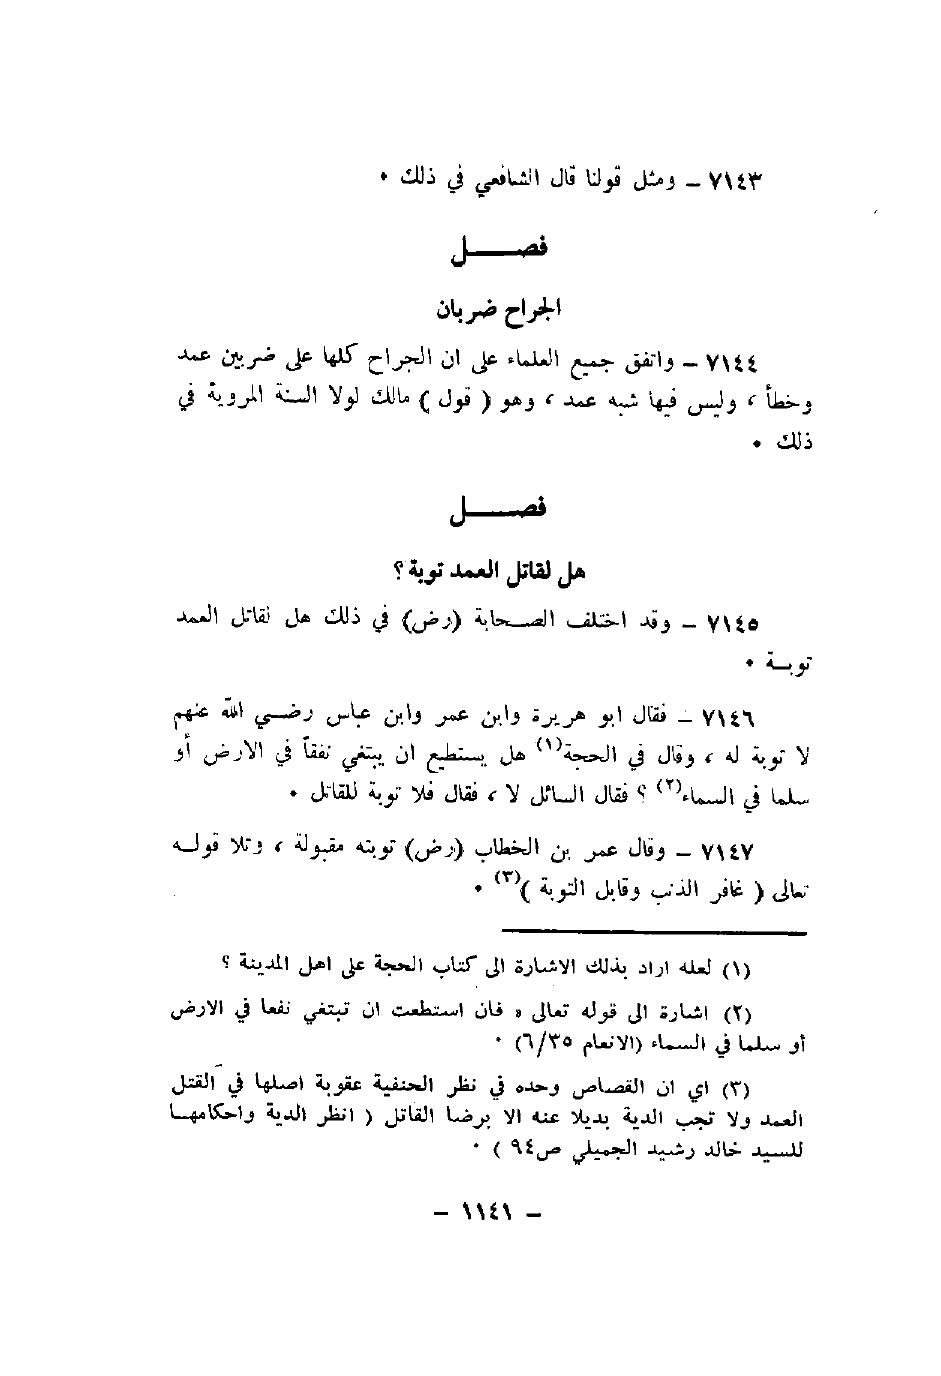 ٧١٤٣ ــ ومثل قولنا قال الشافعي في ذلك ٠
فصـــــل
الجراح ضربان
٧١٤٤ ــ واتفق جميع العلماء على ان الجراح كلها على ضربين عمد
وخطأ ، وليس فيها شبه عمد ، وهو ( قول ) مالك لولا السنة المروية في
ذلك ٠
فصـــــل
هل لقاتل العمد توبة ؟
٧١٤٥ ــ وقد اختلف الصـحابة (رض) في ذلك هل لقاتل العمد
توبـة ٠
٧١٤٦ ــ فقال ابو هريرة وابن عمر وابن عباس رضـي الله عنهم
لا توبة له ، وقال في الحجة(١) هل يستطيع ان يبتغي نفقاً في الارض أو
سلما في السماء(٢) ؟ فقال السائل لا ، فقال فلا توبة للقاتل ٠
٧١٤٧ ــ وقال عمر بن الخطاب (رض) توبته مقبولة ، وتلا قولـه
تعالى ( غافر الذنب وقابل التوبة )(٣) ٠
(١) لعله اراد بذلك الاشارة الى كتاب الحجة على اهل المدينة ؟
(٢) اشارة الى قوله تعالى « فان استطعت ان تبتغي نفعا في الارض
أو سلما في السماء (الانعام ٦/٣٥) ٠
(٣) اي ان القصاص وحده في نظر الحنفية عقوبة اصلها في القتل
العمد ولا تجب الدية بديلا عنه الا برضا القاتل ( انظر الدية واحكامهـا
للسيد خالد رشيد الجميلي ص٩٤ ) ٠
ــ ١١٤١ ــ